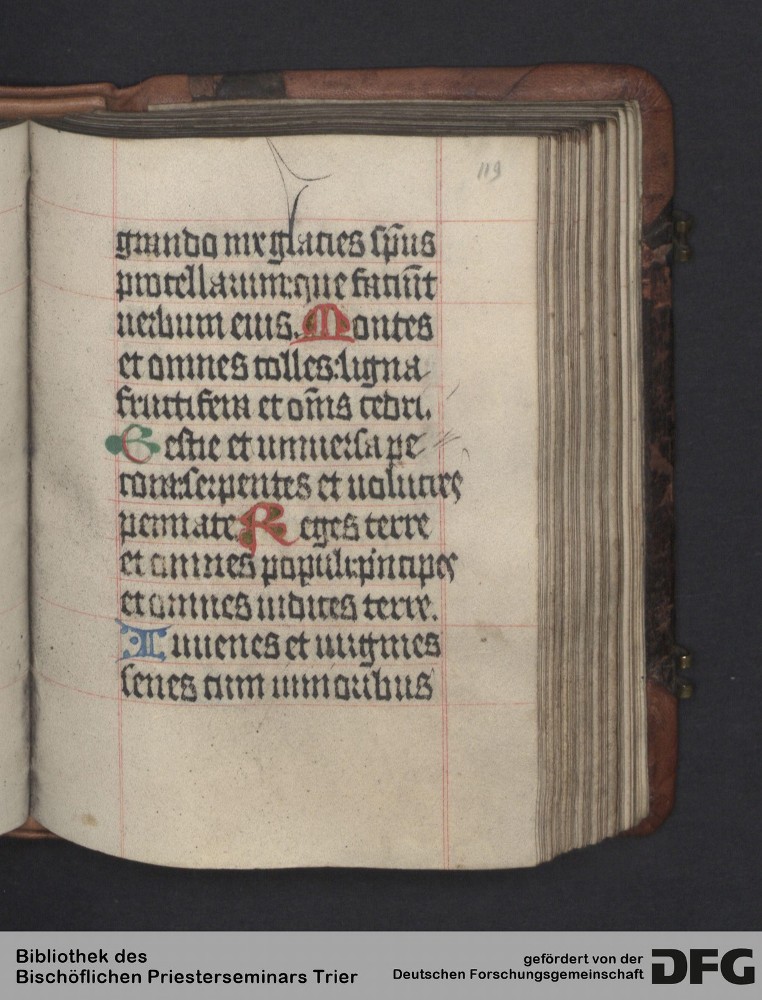 119
grando nix glacies sp̄us
procellarum: que faciūt
uerbum eius. Montes
et omnes colles: ligna
fructifera et om̄s cedri.
Bestie et uniuersa pe
cora: serpentes et uolucres
pennate. Reges terre
et omnes populi: principes
et omnes iudices terre.
Iuuenes et uirgines
senes cum iunioribus
Bibliothek des
Bischöflichen Priesterseminars Trier
gefördert von der
Deutschen Forschungsgemeinschaft
DFG